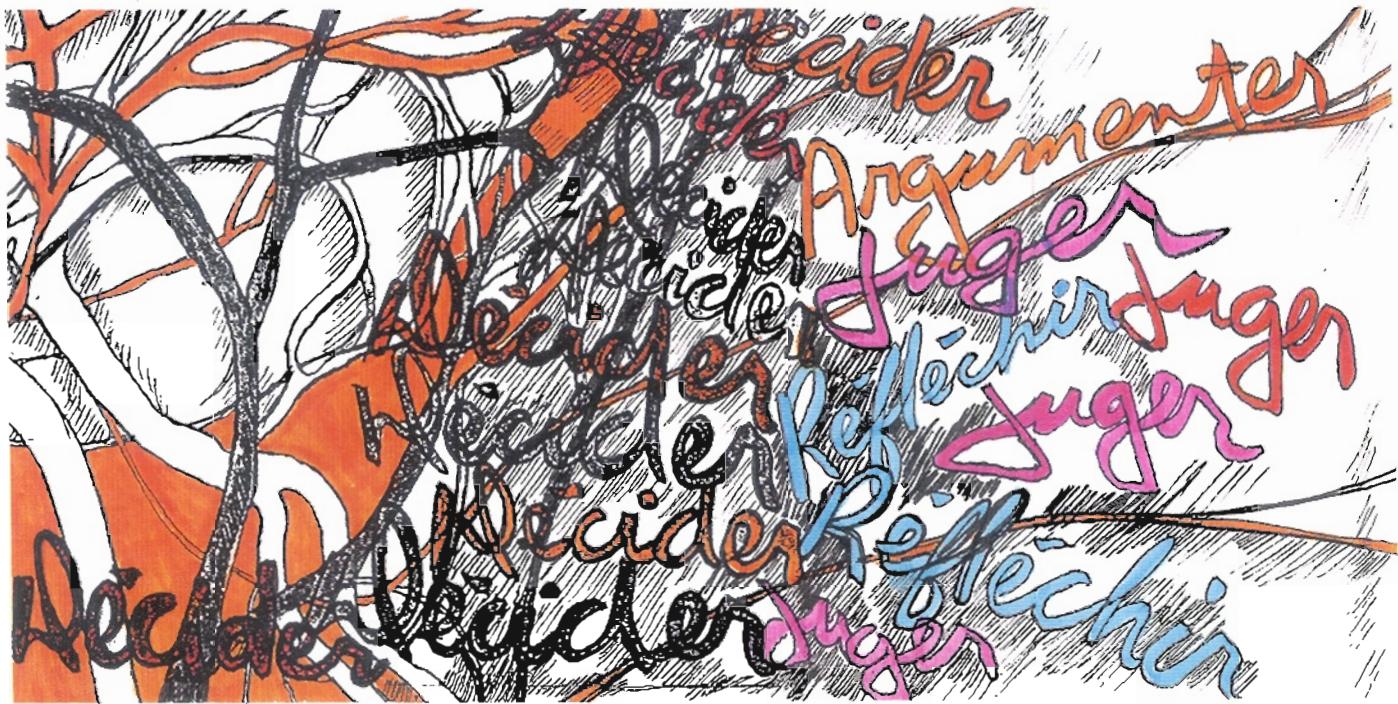 Décider
Décider
Argumenter
Décider
Juger
Décider
Réfléchir Juger
Décider
Juger
Décider
Réfléchir
Décider
Décider
Décider
Juger